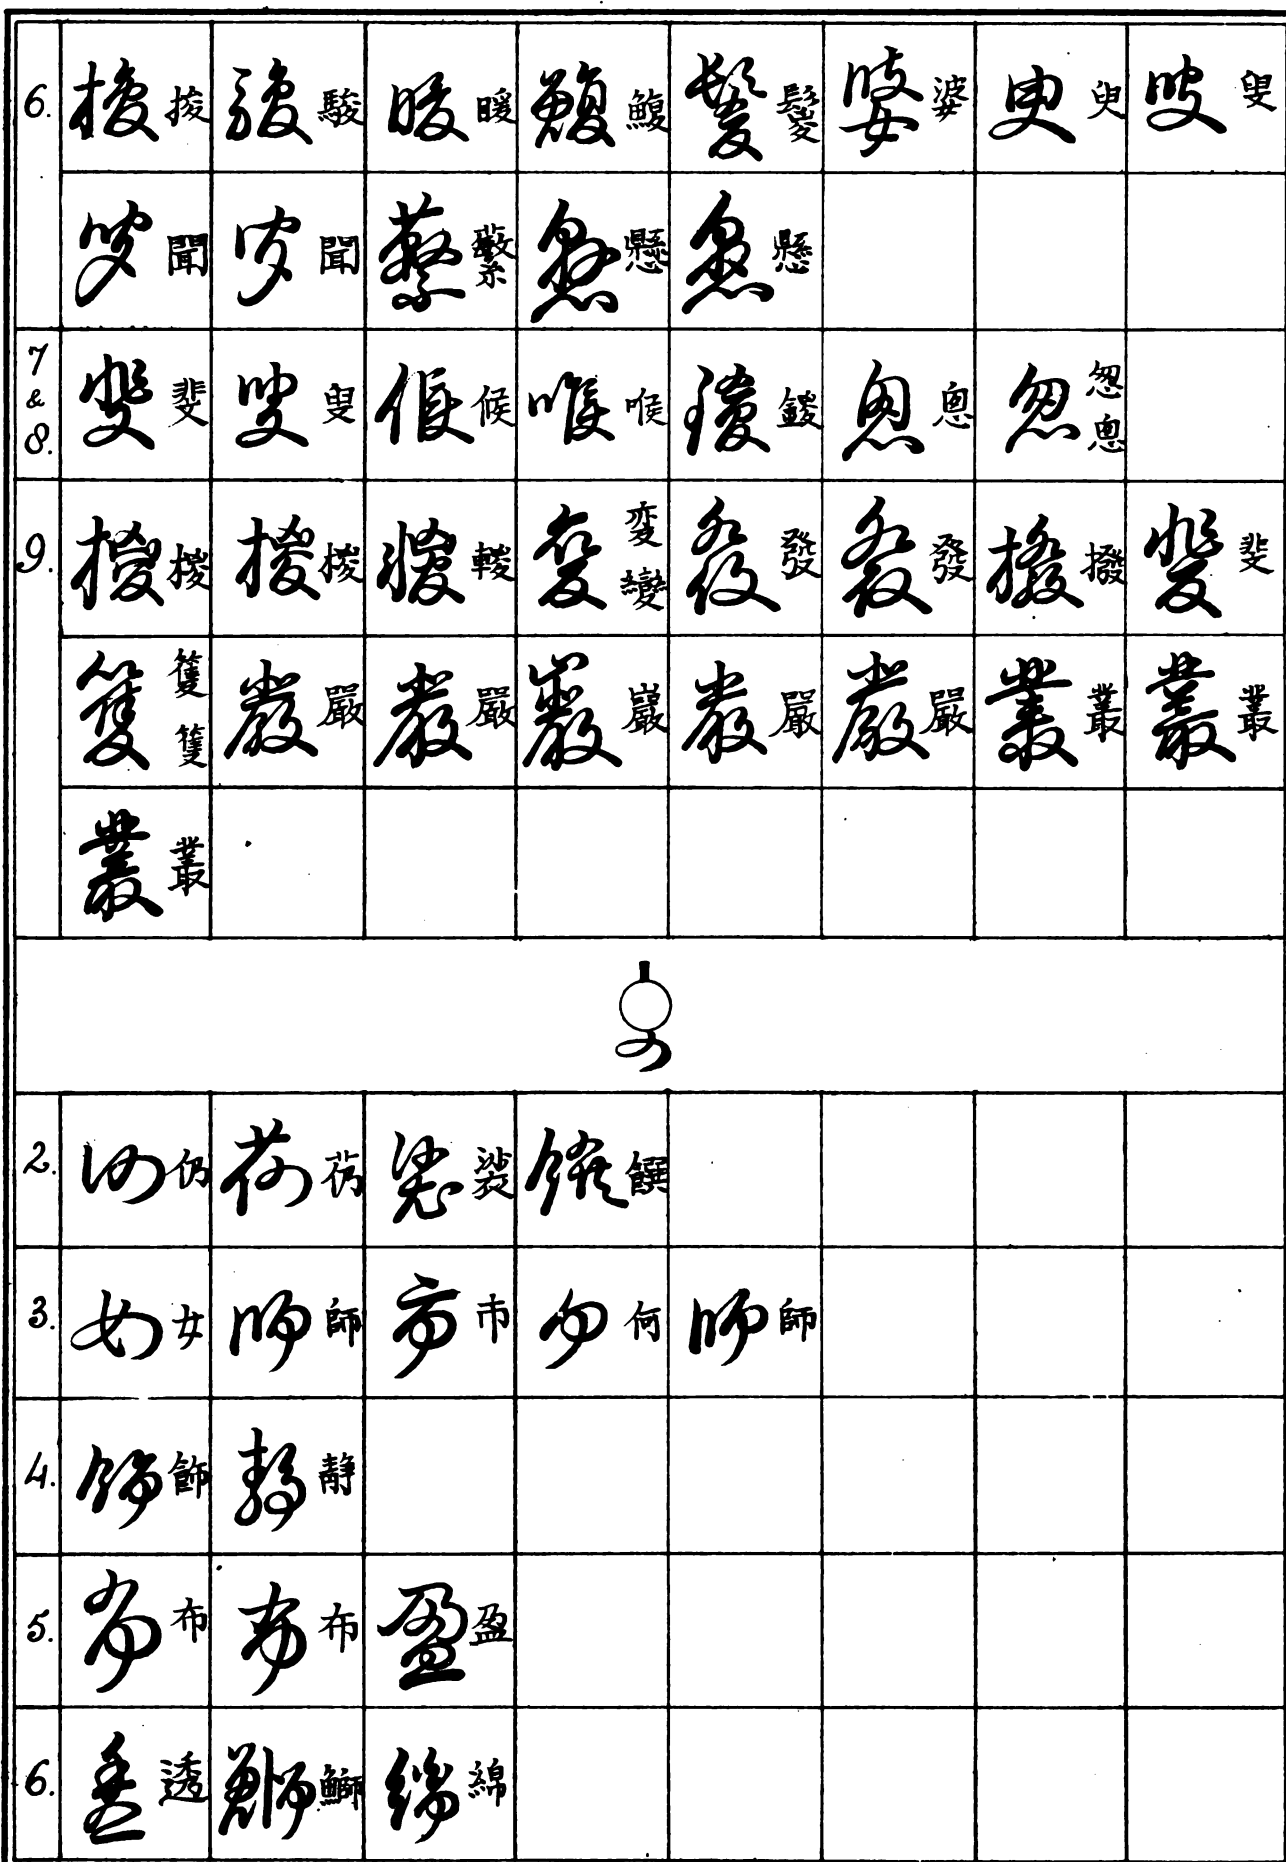 6. 捘 駿 暖 鰒 鬉 婆 臾 叟
聞 聞 繁 懸 懸
7 & 8. 斐 叟 候 喉 鍐 恖 怱 恖
9. 椶 椶 輚 変 變 發 發 撥 斐
籆 篗 嚴 嚴 巖 嚴 嚴 叢 叢
叢
2. 仍 芿 裟 饌
3. 女 師 市 何 師
4. 飾 静
5. 布 布 盈
6. 透 鰤 綿